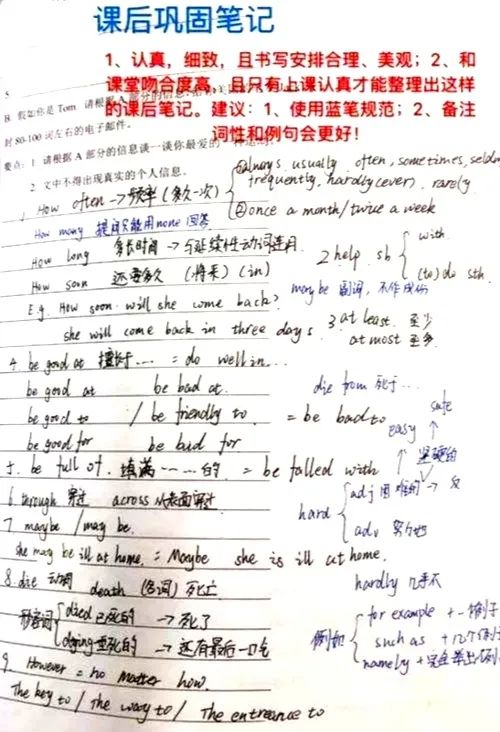 课后巩固笔记
1、认真，细致，且书写安排合理、美观；2、和
课堂吻合度高，且只有上课认真才能整理出这样
的课后笔记。建议：1、使用蓝笔规范；2、备注
词性和例句会更好！
5
B. 假如你是 Tom, 请根据 A 部分的信息
封 80-100 词左右的电子邮件。
要点：1. 请根据 A 部分的信息谈一谈你最爱的
2. 文中不得出现真实的个人信息。
1. How often → 频率 (多久一次)
①always usually often, sometimes, seldom
frequently, hardly(ever), rarely
②once a month/twice a week
How many 提问只能用none回答
How long 多长时间 → 与延续性动词连用
How soon 还要多久 (将来) (in)
E.g. How soon will she come back?
she will come back in three days.
2 help sb
with
(to) do sth.
maybe 副词, 不作成份
3 at least 至少
at most 至多
4. be good at 擅长… = do well in…
be good at be bad at.
be good to / be friendly to. = be bad to
be good for be bad for
die from 死于…
5. be full of. 填满……的 = be falled with
6. through 穿过 across 从表面穿过
7 maybe / may be.
she may be ill at home. = Maybe she is ill at home.
safe
easy
坚硬的
hard
adj 困难的 → 反
adv 努力地
hardly 几乎不
8. die 动词 death (名词) 死亡
died 已死的 → 死了
dying 垂死的 → 还有最后一口气
例如
for example + 一例子
such as + 几个例子
namely + 完全举出例
9. However = no matter how.
The key to / The way to / The entrance to